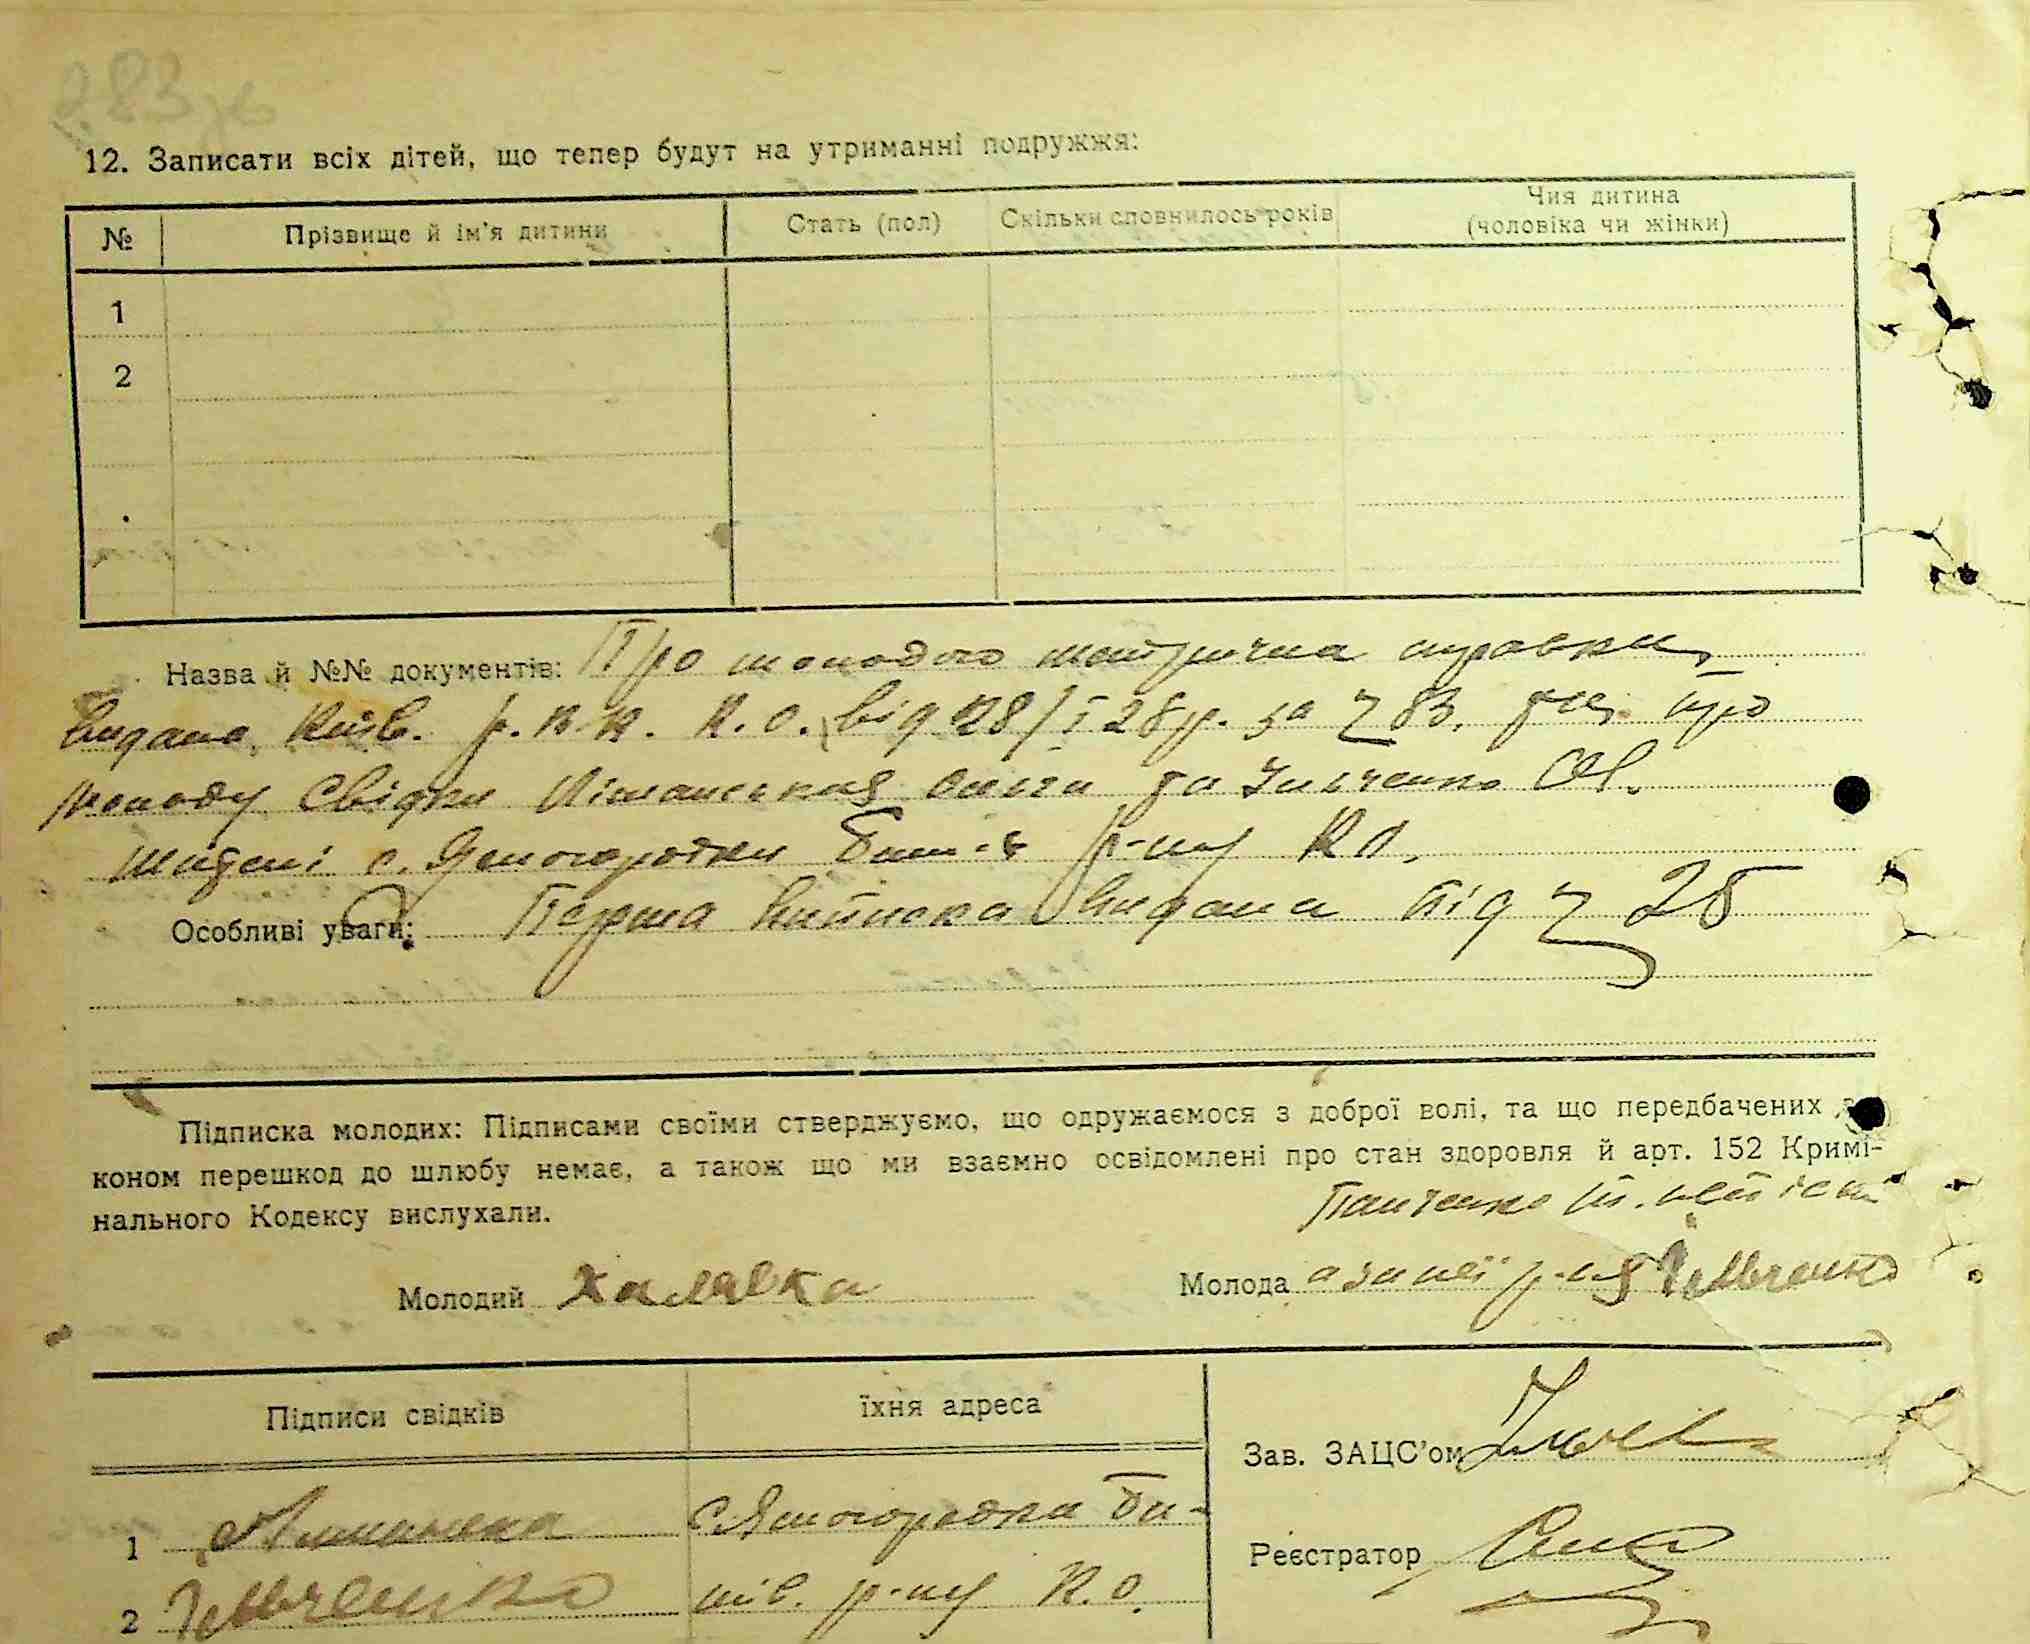 283зв
12. Записати всіх дітей, що тепер будут на утриманні подружжя:
№ Прізвище й ім'я дитини Стать (пол) Скільки сповнилось років Чия дитина (чоловіка чи жінки)
1
2
Назва й №№ документів: Про молодого метрична справка,
видана Київ. р. в. к. К. О. від 28/І 28 р. за ч 83. Про
молоду свідки Ольга та Ільченко
жителі с. Ясногородки р-ну К О.
Особливі уваги: Перша виписка видана під ч 26
Підписка молодих: Підписами своїми стверджуємо, що одружаємося з доброї волі, та що передбачених
коном перешкод до шлюбу немає, а також що ми взаємно освідомлені про стан здоровля й арт. 152 Кримі-
нального Кодексу вислухали.
Панченко
Молодий Халявка Молода а за неї р-ся Ільченко
Підписи свідків їхня адреса
Зав. ЗАЦС'ом
1 с. Ясногородка Би-
Реєстратор
2 Ільченко шів. р-ну К. О.